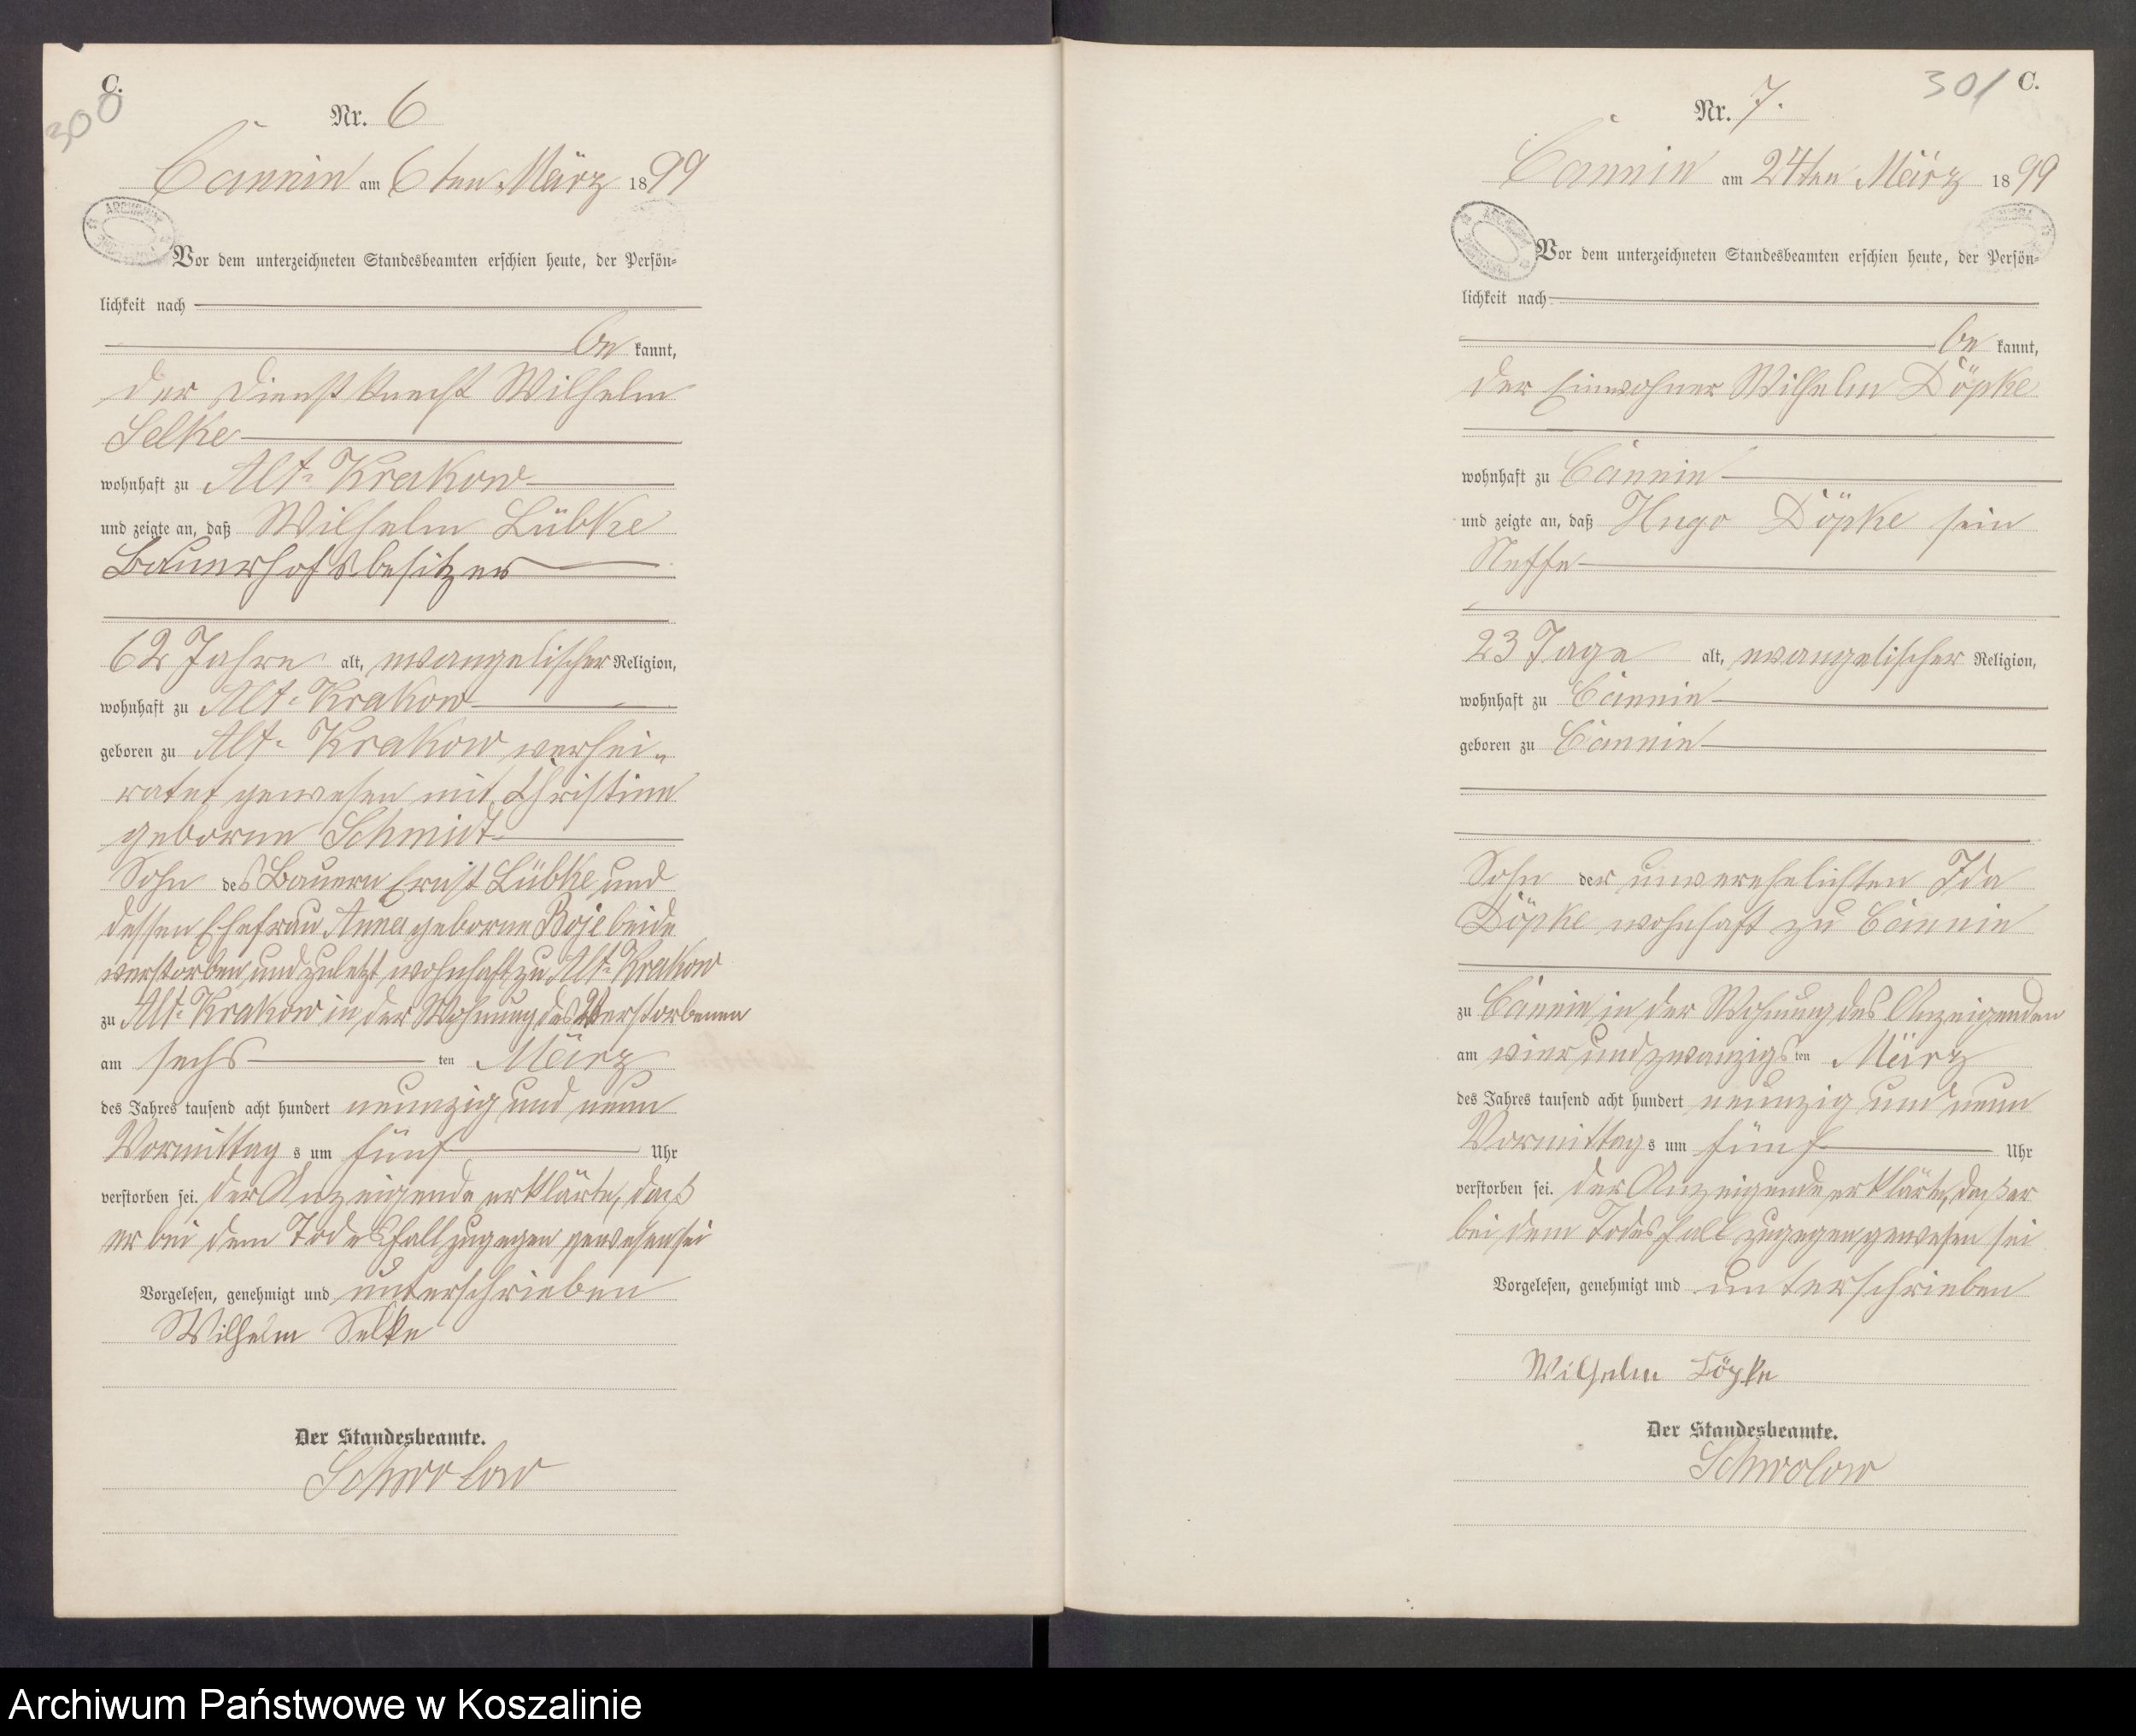 C.
300
Nr. 6
Cannin am 6ten März 1899
Vor dem unterzeichneten Standesbeamten erschien heute, der Persön-
lichkeit nach
be kannt,
der Dienstknecht Wilhelm
Selke
wohnhaft zu Alt-Krakow
und zeigte an, daß Wilhelm Lübke
Bauerhofsbesitzer
62 Jahre alt, evangelischer Religion,
wohnhaft zu Alt-Krakow
geboren zu Alt-Krakow verhei-
ratet gewesen mit Christine
geborne Schmidt
Sohn des Bauern Ernst Lübke und
dessen Ehefrau Anna geborne Boje beide
verstorben und zuletzt wohnhaft zu Alt-Krakow
zu Alt-Krakow in der Wohnung des Verstorbenen
am sechs ten März
des Jahres tausend acht hundert neunzig und neun
Vormittag s um fünf Uhr
verstorben sei. Der Anzeigende erklärte, daß
er bei dem Todesfall zugegen gewesen sei
Vorgelesen, genehmigt und unterschrieben
Wilhelm Selke
Der Standesbeamte.
Schwolow
301 C.
Nr. 7.
Cannin am 24ten März 1899
Vor dem unterzeichneten Standesbeamten erschien heute, der Persön-
lichkeit nach
be kannt,
der Einwohner Wilhelm Döpke
wohnhaft zu Cannin
und zeigte an, daß Hugo Döpke sein
Neffe
23 Tage alt, evangelischer Religion,
wohnhaft zu Cannin
geboren zu Cannin
Sohn der unverehelichten Ida
Döpke wohnhaft zu Cannin
zu Cannin in der Wohnung des Anzeigenden
am vier und zwanzigs ten März
des Jahres tausend acht hundert neunzig und neun
Vormittag s um fünf Uhr
verstorben sei. Der Anzeigende erklärte, daß er
bei dem Todesfall zugegen gewesen sei
Vorgelesen, genehmigt und unterschrieben
Wilhelm Döpke
Der Standesbeamte.
Schwolow
Archiwum Państwowe w Koszalinie